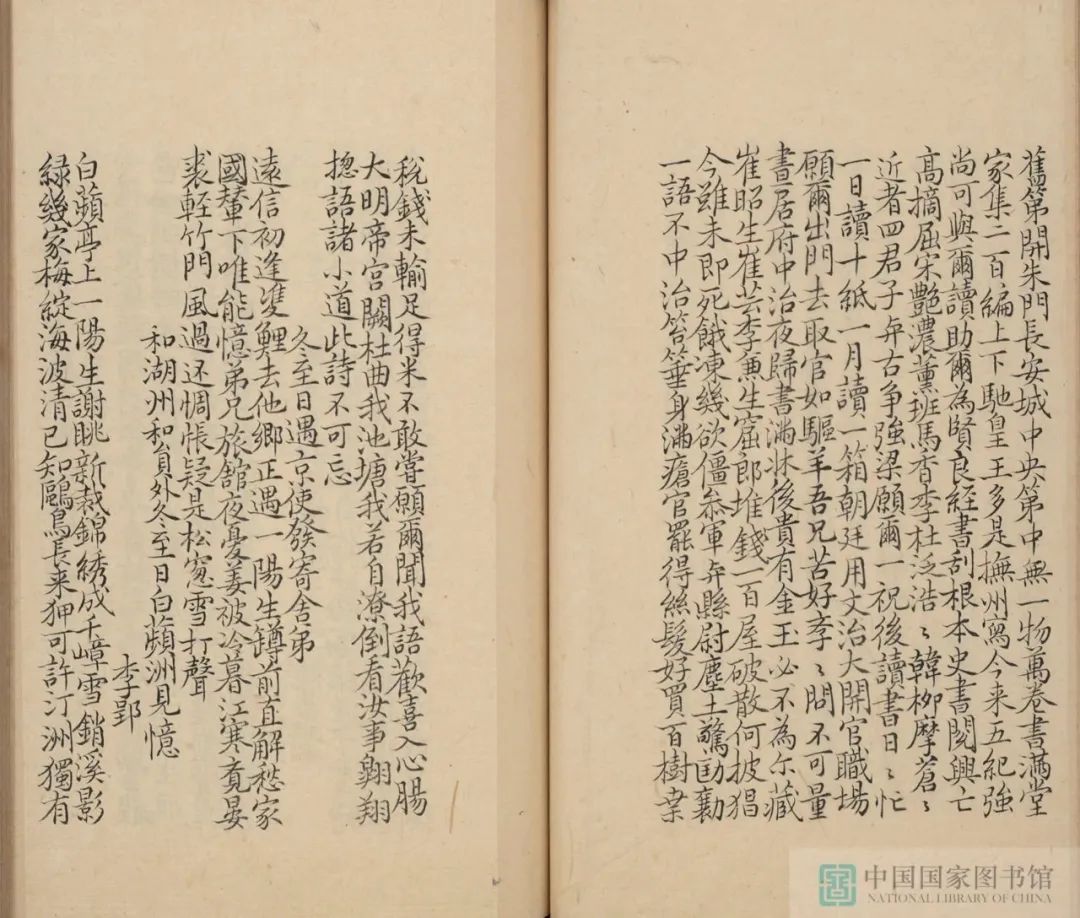 舊第開朱門長安城中央第中無一物萬卷書滿堂
家集二百編上下馳皇王多是撫州寫今来五紀強
尚可與爾讀助爾為賢良經書刮根本史書閱興亡
高摘屈宋艷濃薰班馬香李杜泛浩〻韓柳摩蒼〻
近者四君子弁古争強梁願爾一祝後讀書日〻忙
一日讀十紙一月讀一箱朝廷用文治大開官職場
願爾出門去取官如驅羊吾兄苦好孝〻問不可量
晝居府中治夜歸書滿牀後貴有金玉必不為尔藏
崔昭生崔芸李兼生窟郎堆錢一百屋破散何披猖
今雖未即死餓凍幾欲僵叅軍弁縣尉塵土驚劻勷
一語不中治笞箠身滿瘡官罷得絲髮好買百樹桒
稅錢未輸足得米不敢嘗願爾聞我語歡喜入心腸
大明帝宮闕杜曲我池塘我若自潦倒看汝事翱翔
摠語諸小道此詩不可忘
冬至日遇京使發寄舍弟
遠信初逢雙鯉去他鄉正遇一陽生罇前豈解愁家
國輦下唯能憶弟兄旅舘夜憂姜被冷暮江寒竟晏
裘軽竹門風過还惆悵疑是松窓雪打聲
和湖州和貟外冬至日白蘋洲見憶
李郢
白蘋亭上一陽生謝眺新裁錦綉成千嶂雪銷溪影
緑幾家梅綻海波清已知鷗鳥長来狎可許汀洲獨有
中国国家图书馆
NATIONAL LIBRARY OF CHINA